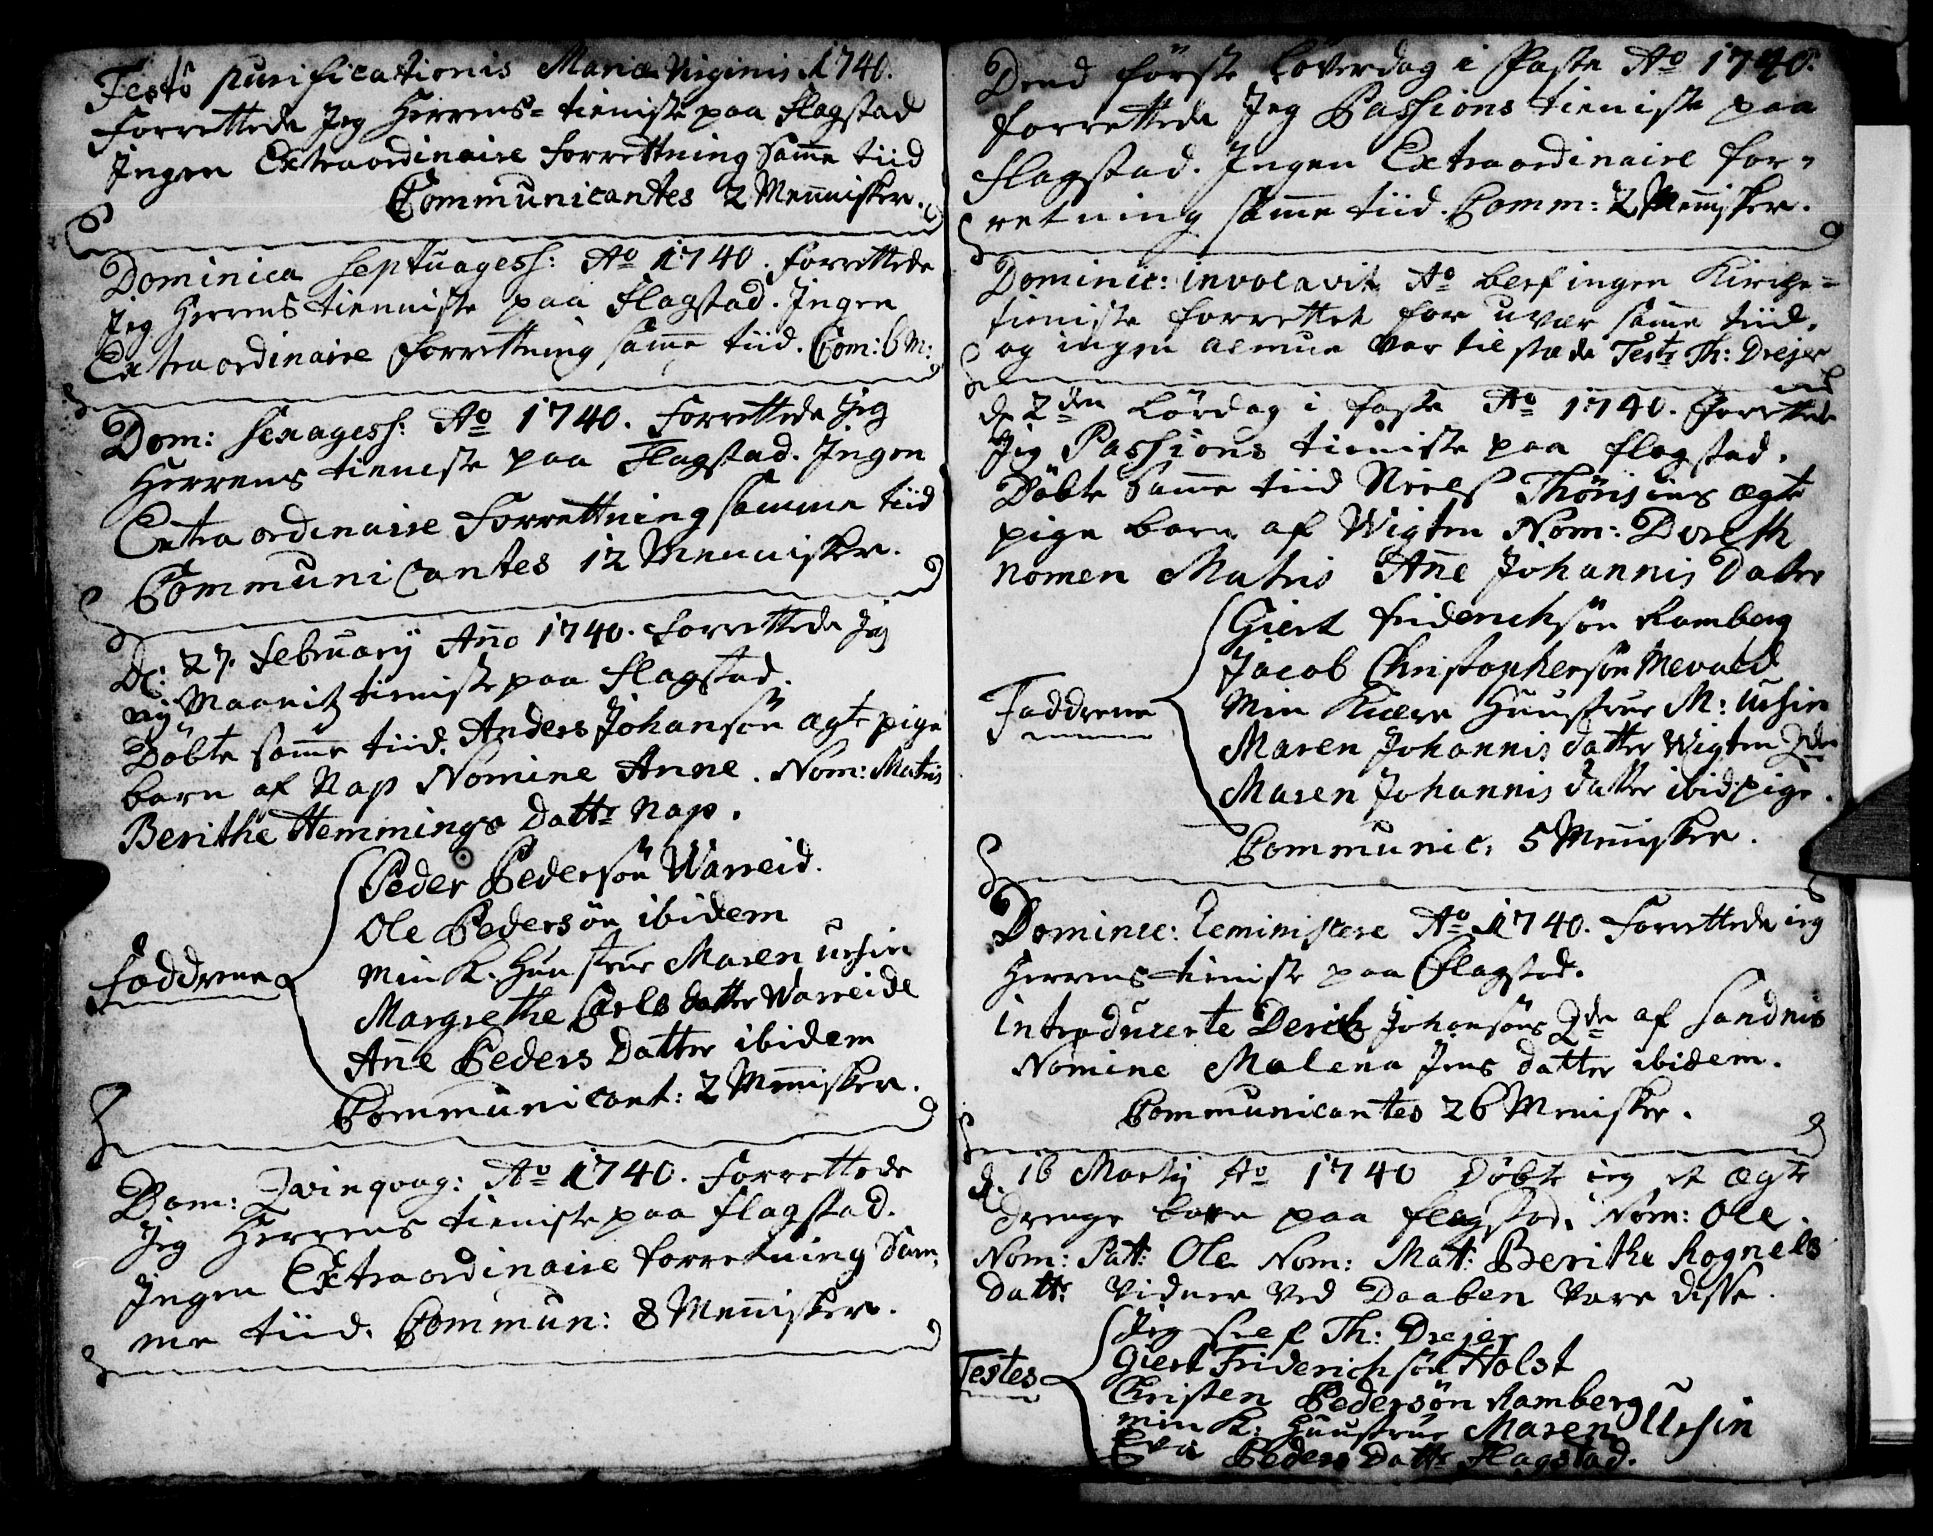 Festo purificationis Mariæ Virginis 1740.
Forrettede Jeg Herrens-tieniste paa Flagstad
Jngen Extraordinaire Forrettning Same tiid
Communicantes 2 Mennisker.
Dominica Septuagess: Ao 1740. forrettede
Jeg Herrens tienniste paa Flagstad. Jngen
Extraordinaire forrettning same tiid. Com: 6 M:
Dom: Sexagess: Ao 1740. Forrettede jeg
Herrens tienneste paa Flagstad. Jngen
Extraordinaire Forrettning samme tiid
Communicantes 12 Mennisker.
D: 27. February Ano 1740. forrettede Jeg
Maanitz tieniste paa Flagstad.
Döbte same tiid. Anders Johansön ægte pige
barn af Nap Nomine Anne. Nom: Matris
Berithe Hemmings Dattr Nap.
Peder Pedersön Warreid.
Ole Pedersön ibidem
Min K. Huustrue Maren Ursin
Faddrene
Margrethe Carls datter Warreide
Ane Peders Datter ibidem
Communicant: 2 Menisker.
Dom: Qvinqvag: Ao 1740. Forrettede
Jeg Herrens tieniste paa flagstad.
Jngen Extraordinaire forretning Sam,
me tiid. Commun: 8 Menisker.
Dend förste Löverdag i Faste Ao 1740.
forrettede Jeg Passions tieniste paa
flagstad. Jngen Extraordinaire for-
retning same tiid. Comm: 2 Menisker.
Dominic: invocavit Ao blef ingen Kirche-
tieniste forrettet for uvær same tiid.
og ingen almue var tilstæde Test: Th: Drejer
d. 2den Lördag i faste Ao 1740. Forrettede
Jeg Passions tieniste paa flagstad.
Döbte Same tiid Niels Thörisens ægte
pige barn af Wigten Nom: Doreth
nomen Matris Ane Johannis Datter
Giert friderichsön Ramberg
Jacob Christophersön Mevald
Faddrene
Min Kiære Huustrue M: Ursin
Maren Johannis datter Wigten Qde
Maren Johannis datter ibid: pige.
Communic: 5 Menisker.
Dominic: Reminiscere Ao 1740. Forrettede jeg
Herrens tieniste paa Flagstad.
introducerte Derich Johansöns Qde af Sandnis
Nomine Malena Jens datter ibidem.
Communicantes 26 Menisker.
d. 16 Marty Ao 1740 Döbte jeg et Ægte
drenge barn paa flagstad. Nom: Ole.
Nom: Patt: Ole Nom: Matt: Berithe Rognels
Datt: Vidner Ved Daaben Vare disse.
Jeg self Th: Drejer
Giert Friderichsön Holst
Testes
Christen Pedersön Ramberg
min K: Huustrue Maren Ursin
Eva Peders Dattr Flagstad.